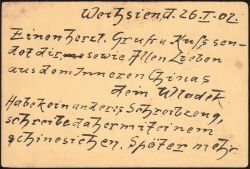 Weihsiend. 26.I.02.
Einen herzl. Gruss u Kuss sen-
det dir, sowie Allen Lieben
aus dem Inneren Chinas
dein Wladek
Habe kein anderes Schreibzeug,
schreibe daher mit einem
chinesischen. Später mehr.